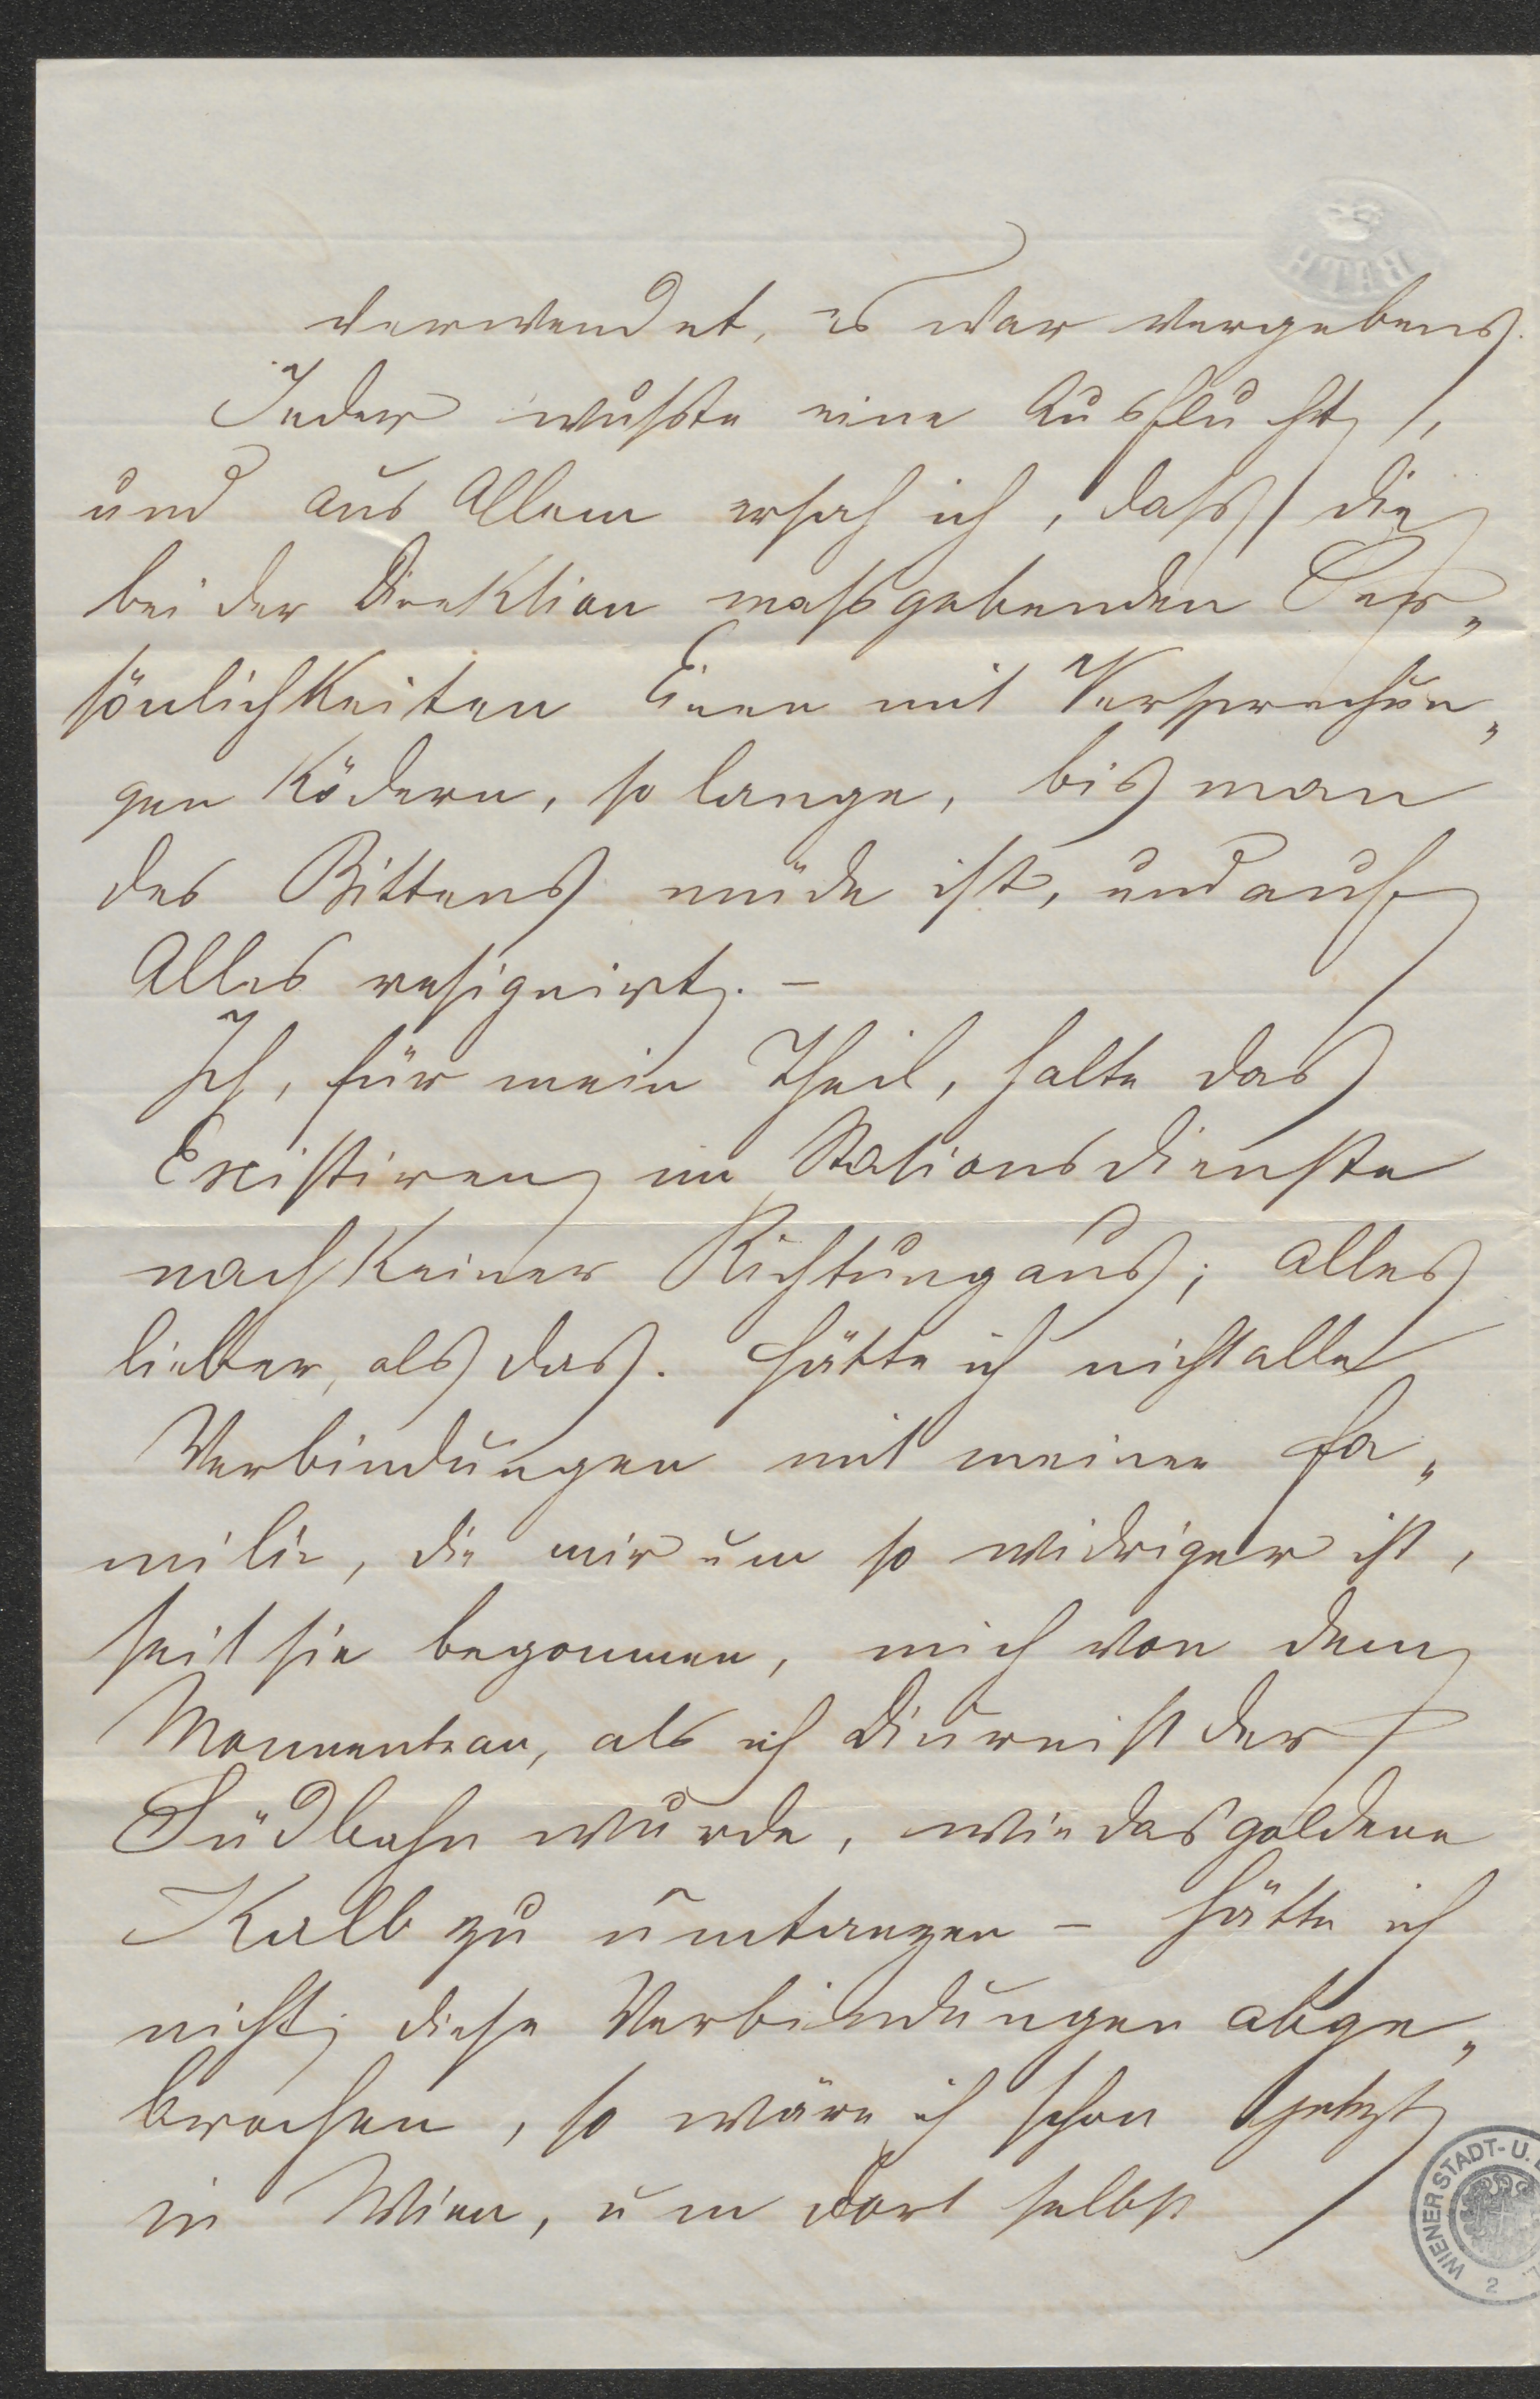 verwendet, es war vergebens.
Jeder wußte eine Ausflucht,
und aus Allem ersah ich, daß die
bei der Direktion maßgebenden Per„
sönlichkeiten Einen mit Versprechun„
gen ködern, so lange, bis man
des Bittens müde ist, und auf
Alles resignirt. –
Ich, für mein Theil, halte das
Existiren im Stationsdienste
nach keiner Richtung aus; alles
lieber, als das. Hätte ich nicht alle
Verbindungen mit meiner Fa„
milie, die mir um so widriger ist,
seit sie begonnen, mich von dem
Momente an, als ich Diurnist der
Südbahn wurde, wie das goldene
Kalb zu umtanzen – hätte ich
nicht diese Verbindungen abge„
brochen, so wäre ich schon jetzt
in Wien, um dort selbst
WIENER STADT- U.
2